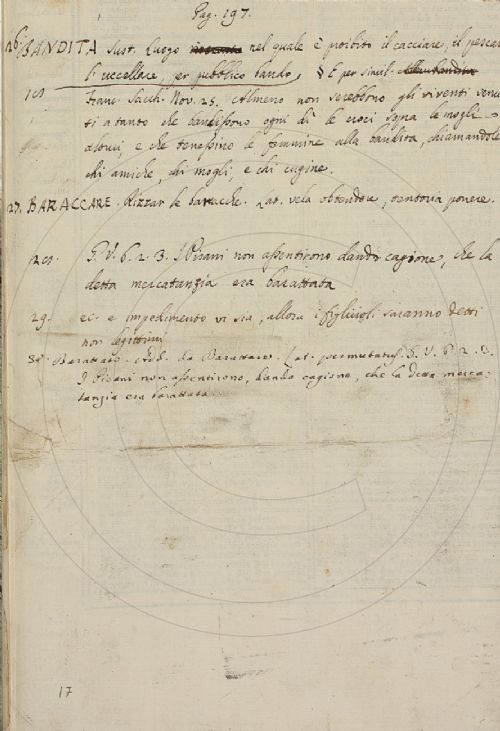 Pag. 197.
26. BANDITA Sust. Luogo nel quale è proibito il cacciare, il pescare
l'uccellare, per pubblico bando, § E per simil.
Franc. Sacch. Nov. 25. Almeno non serebbono gli viventi venu-
ti a tanto che bandissono ogni dì le croci sopra le mogli
altrui, e che tenessino le femmine alla bandita, chiamandole
chi amiche, chi mogli, e chi cugine.
27. BARACCARE. Rizzar le baracche. Lat. vela obtendere, tentoria ponere.
28. G. V. 6. 2. 3. I Pisani non assentirono dando cagione, che la
detta mercatanzia era barattata
29. ec. e impedimento vi sia, allora i figliuoli saranno detti
non legittimi
30. Barattato. Add. da Barattare. Lat. permutatus. G. V. 6. 2. 3.
I Pisani non assentirono, dando cagione, che la detta merca-
tanzia era barattata
17